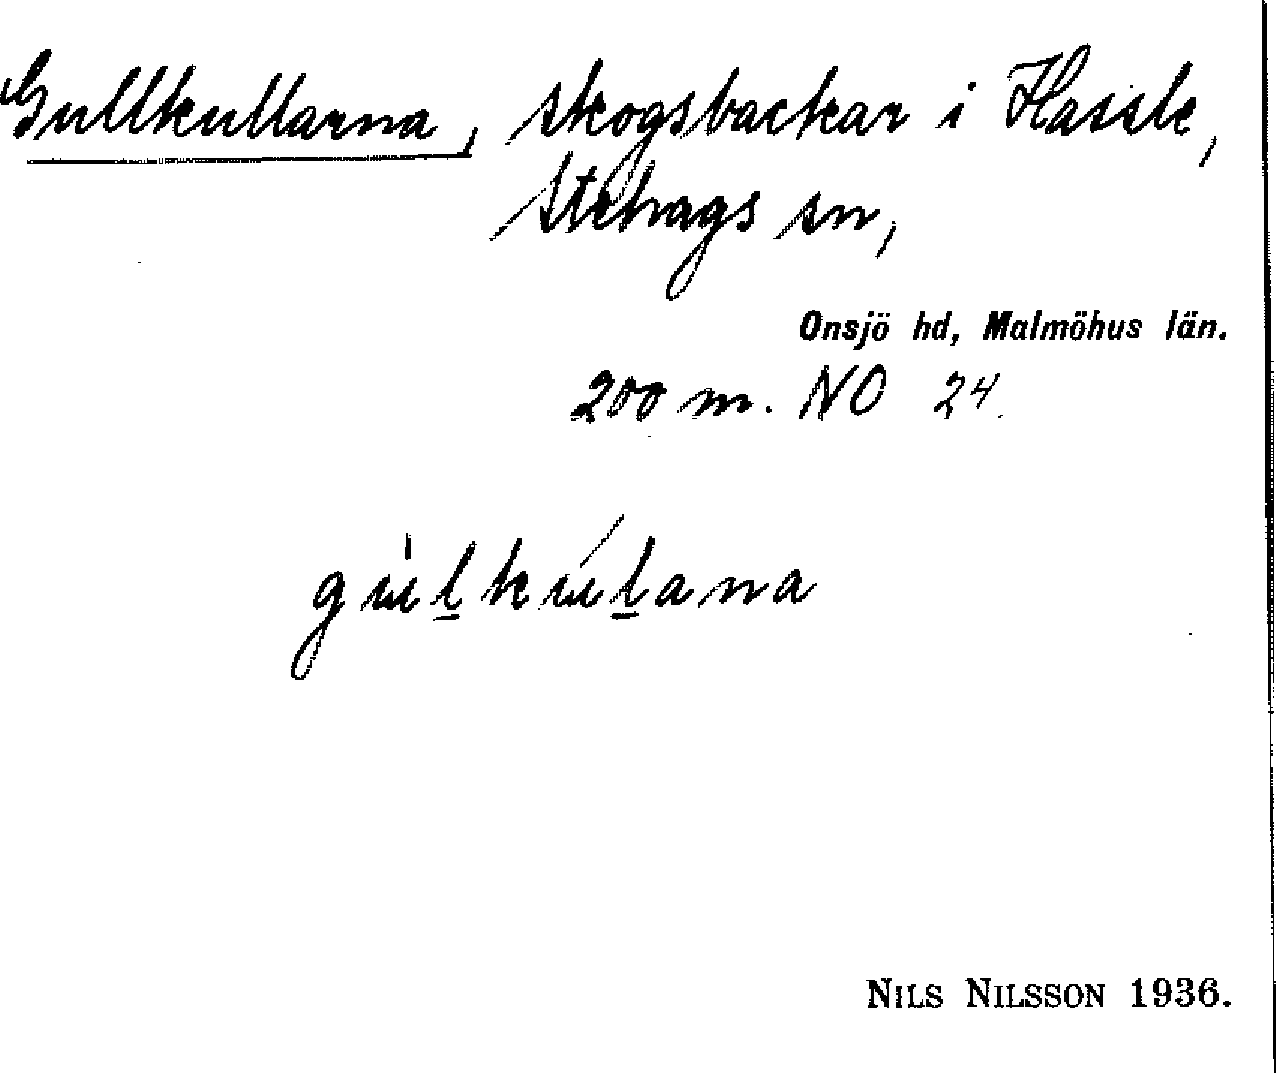 Gullkullarna, skogsbackar i Hassle,
Stehags sn,
Onsjö hd, Malmöhus län.
200 m. NO 24.
gùḻkúḻana
NILS NILSSON 1936.